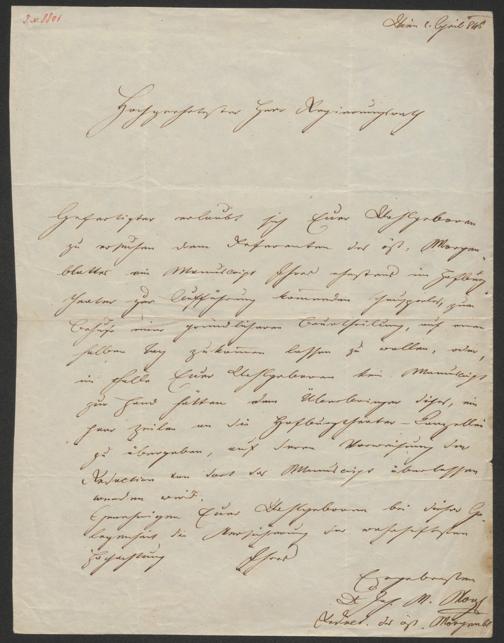 Wien 2. April 846
Hochgeehrtester Herr Regierungsrath
Gefertigter erlaubt sich Euer Wohlgeboren
zu ersuchen dem Referenten des öst. Morgen-
blattes ein Manuscript Ihres ehestens im Hofburg-
theater zur Aufführung kommenden Schauspieles, zum
Behufe einer gründlicheren Beurtheilung, auf einen
halben Tag zukommen lassen zu wollen, oder,
im Falle Euer Wohlgeboren kein Manuscript
zur Hand hätten dem Überbringer dieses, ein
paar Zeilen an die Hofburgtheater-Canzellei
zu übergeben, auf deren Vorweisung der
Redaction von dort das Manuscript überlassen
werden wird.
Genehmigen Euer Wohlgeboren bei dieser Ge-
legenheit die Versicherung der wahrhaftesten
Hochachtung Ihres
Ergebensten
Dr. Joh. N.
Redact. des öst. Morgenbl.